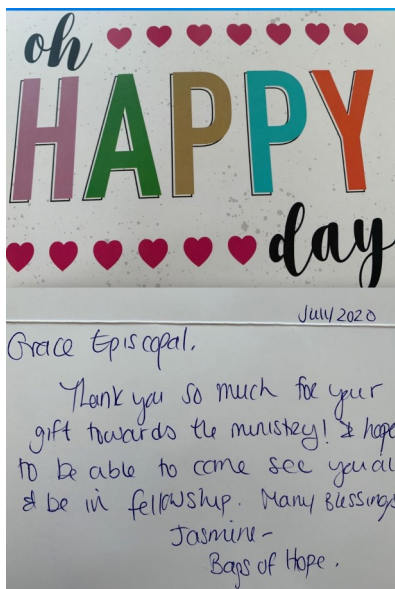 oh
HAPPY
day
July 2020
Grace Episcopal.
Thank you so much for your
gift towards the ministry! I hope
to be able to come see you al
& be in fellowship. Many Blessings
Jasmine-
Bags of Hope.